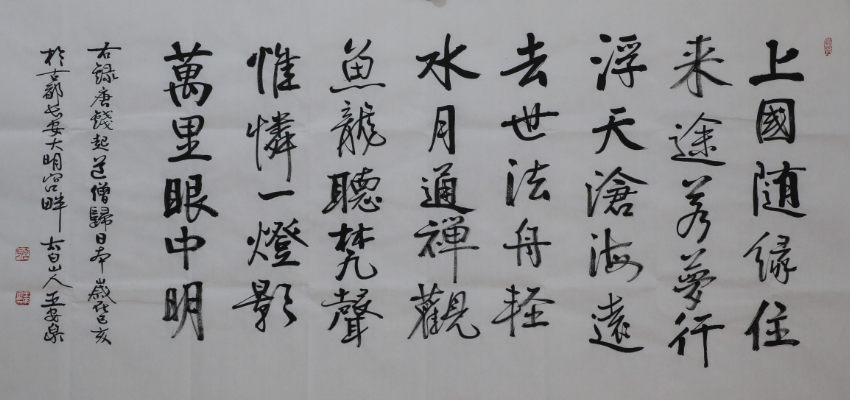 上國随緣住
来途若夢行
浮天滄海遠
去世法舟軽
水月通禪觀
魚龍聽梵聲
惟憐一燈影
萬里眼中明
右録唐錢起送僧歸日本歲在己亥
於古都長安大明宮畔太白山人王安泉